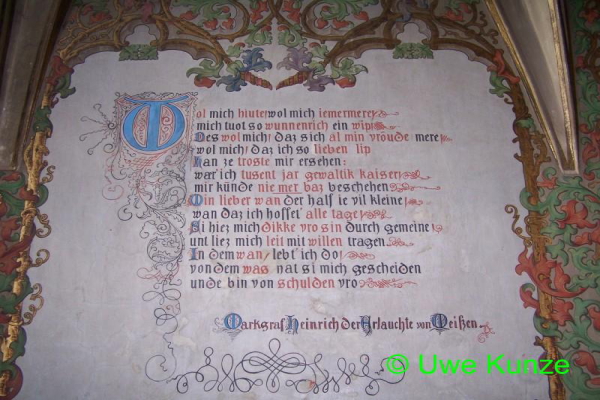 Wol mich hiute, wol mich iemermere,
mich tuot so wunnenrich ein wip,
Des wol mich! daz sich al min vröude mere
wol mich! daz ich so lieben lip
han ze troste mir ersehen:
war' ich tusent jar gewaltik kaiser,
mir künde nie met baz beschehen
Min lieber wan der half ie vil kleine,
wan daz ich hoffet' alle tage,
Si hiez mich dikke vro sin durch gemeine
unt liez mich leit mit willen tragen.
In dem wan lebt' ich do,
von dem was hat si mich gescheiden
unde bin von schulden vro
Markgraf Heinrich der Erlauchte von Meißen.
© Uwe Kunze